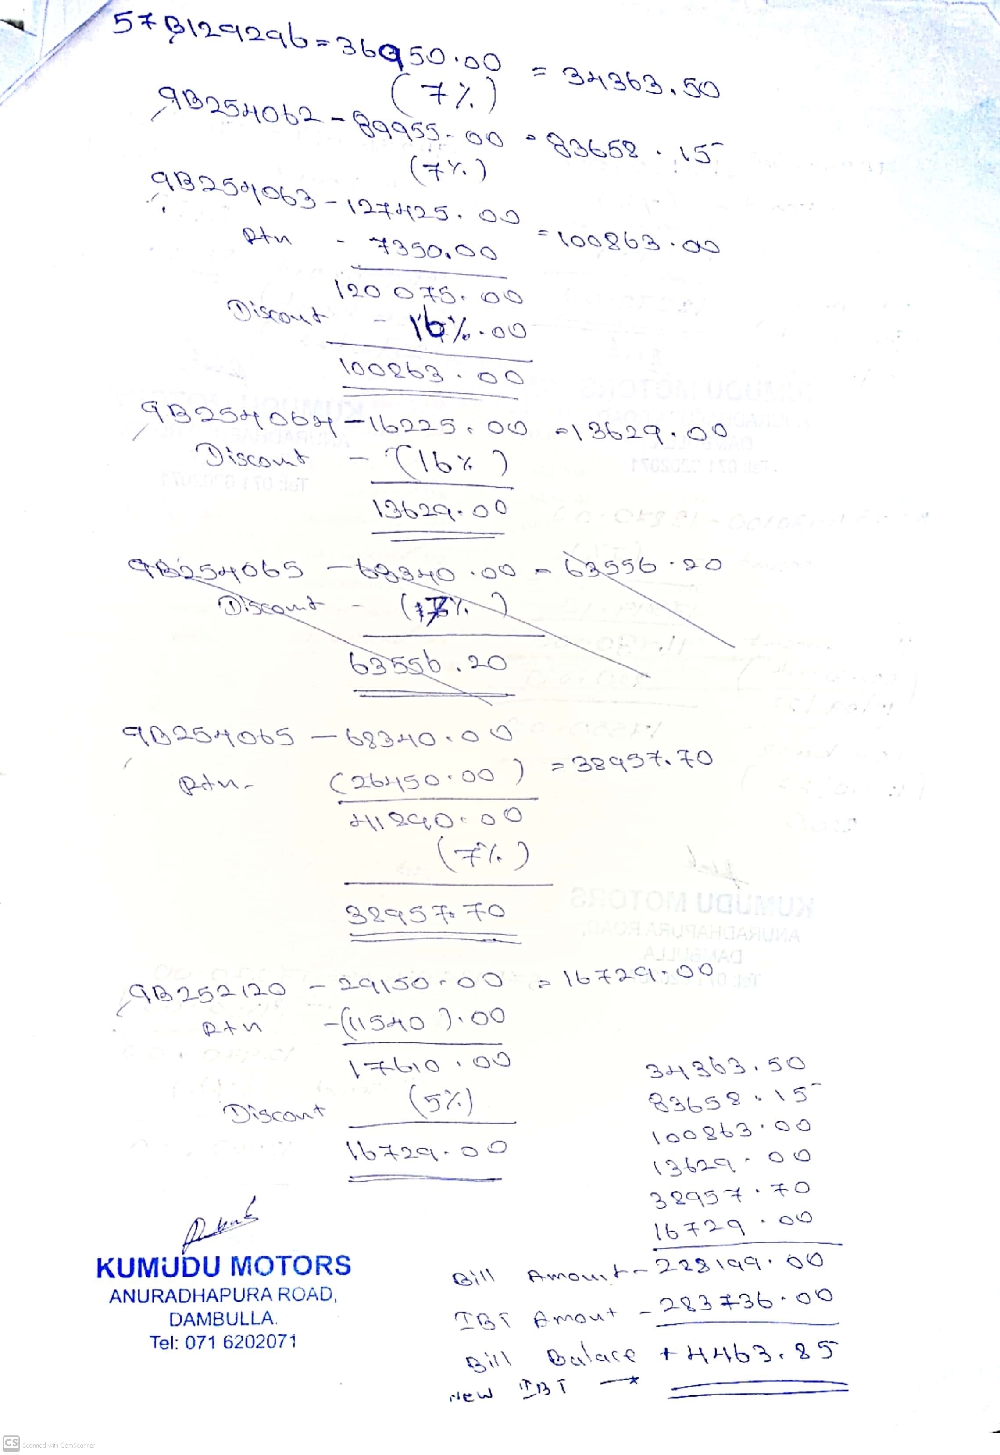 57B129296 = 36950.00 = 34363.50
(7%)
9B254062 - 89955.00 = 83658.15
(7%)
9B254063 - 127425.00 = 100863.00
Rtn - 7350.00
120075.00
Discout - 16%.00
100863.00
9B254064 - 16225.00 = 13629.00
Discount - (16%)
13629.00
9B254065 - 68340.00 = 63556.20
Discount - (7%)
63556.20
9B254065 - 68340.00
Rtn - (26450.00) = 38957.70
41890.00
(7%)
38957.70
9B252120 - 29150.00 = 16729.00
Rtn - (11540).00
17610.00
Discout (5%)
16729.00
34363.50
83658.15
100863.00
13629.00
38957.70
16729.00
Bill Amount - 228199.00
IBT Amout - 283736.00
Bill Balace + 4463.85
New IBT →
KUMUDU MOTORS
ANURADHAPURA ROAD,
DAMBULLA.
Tel: 071 6202071
CS Scanned with CamScanner